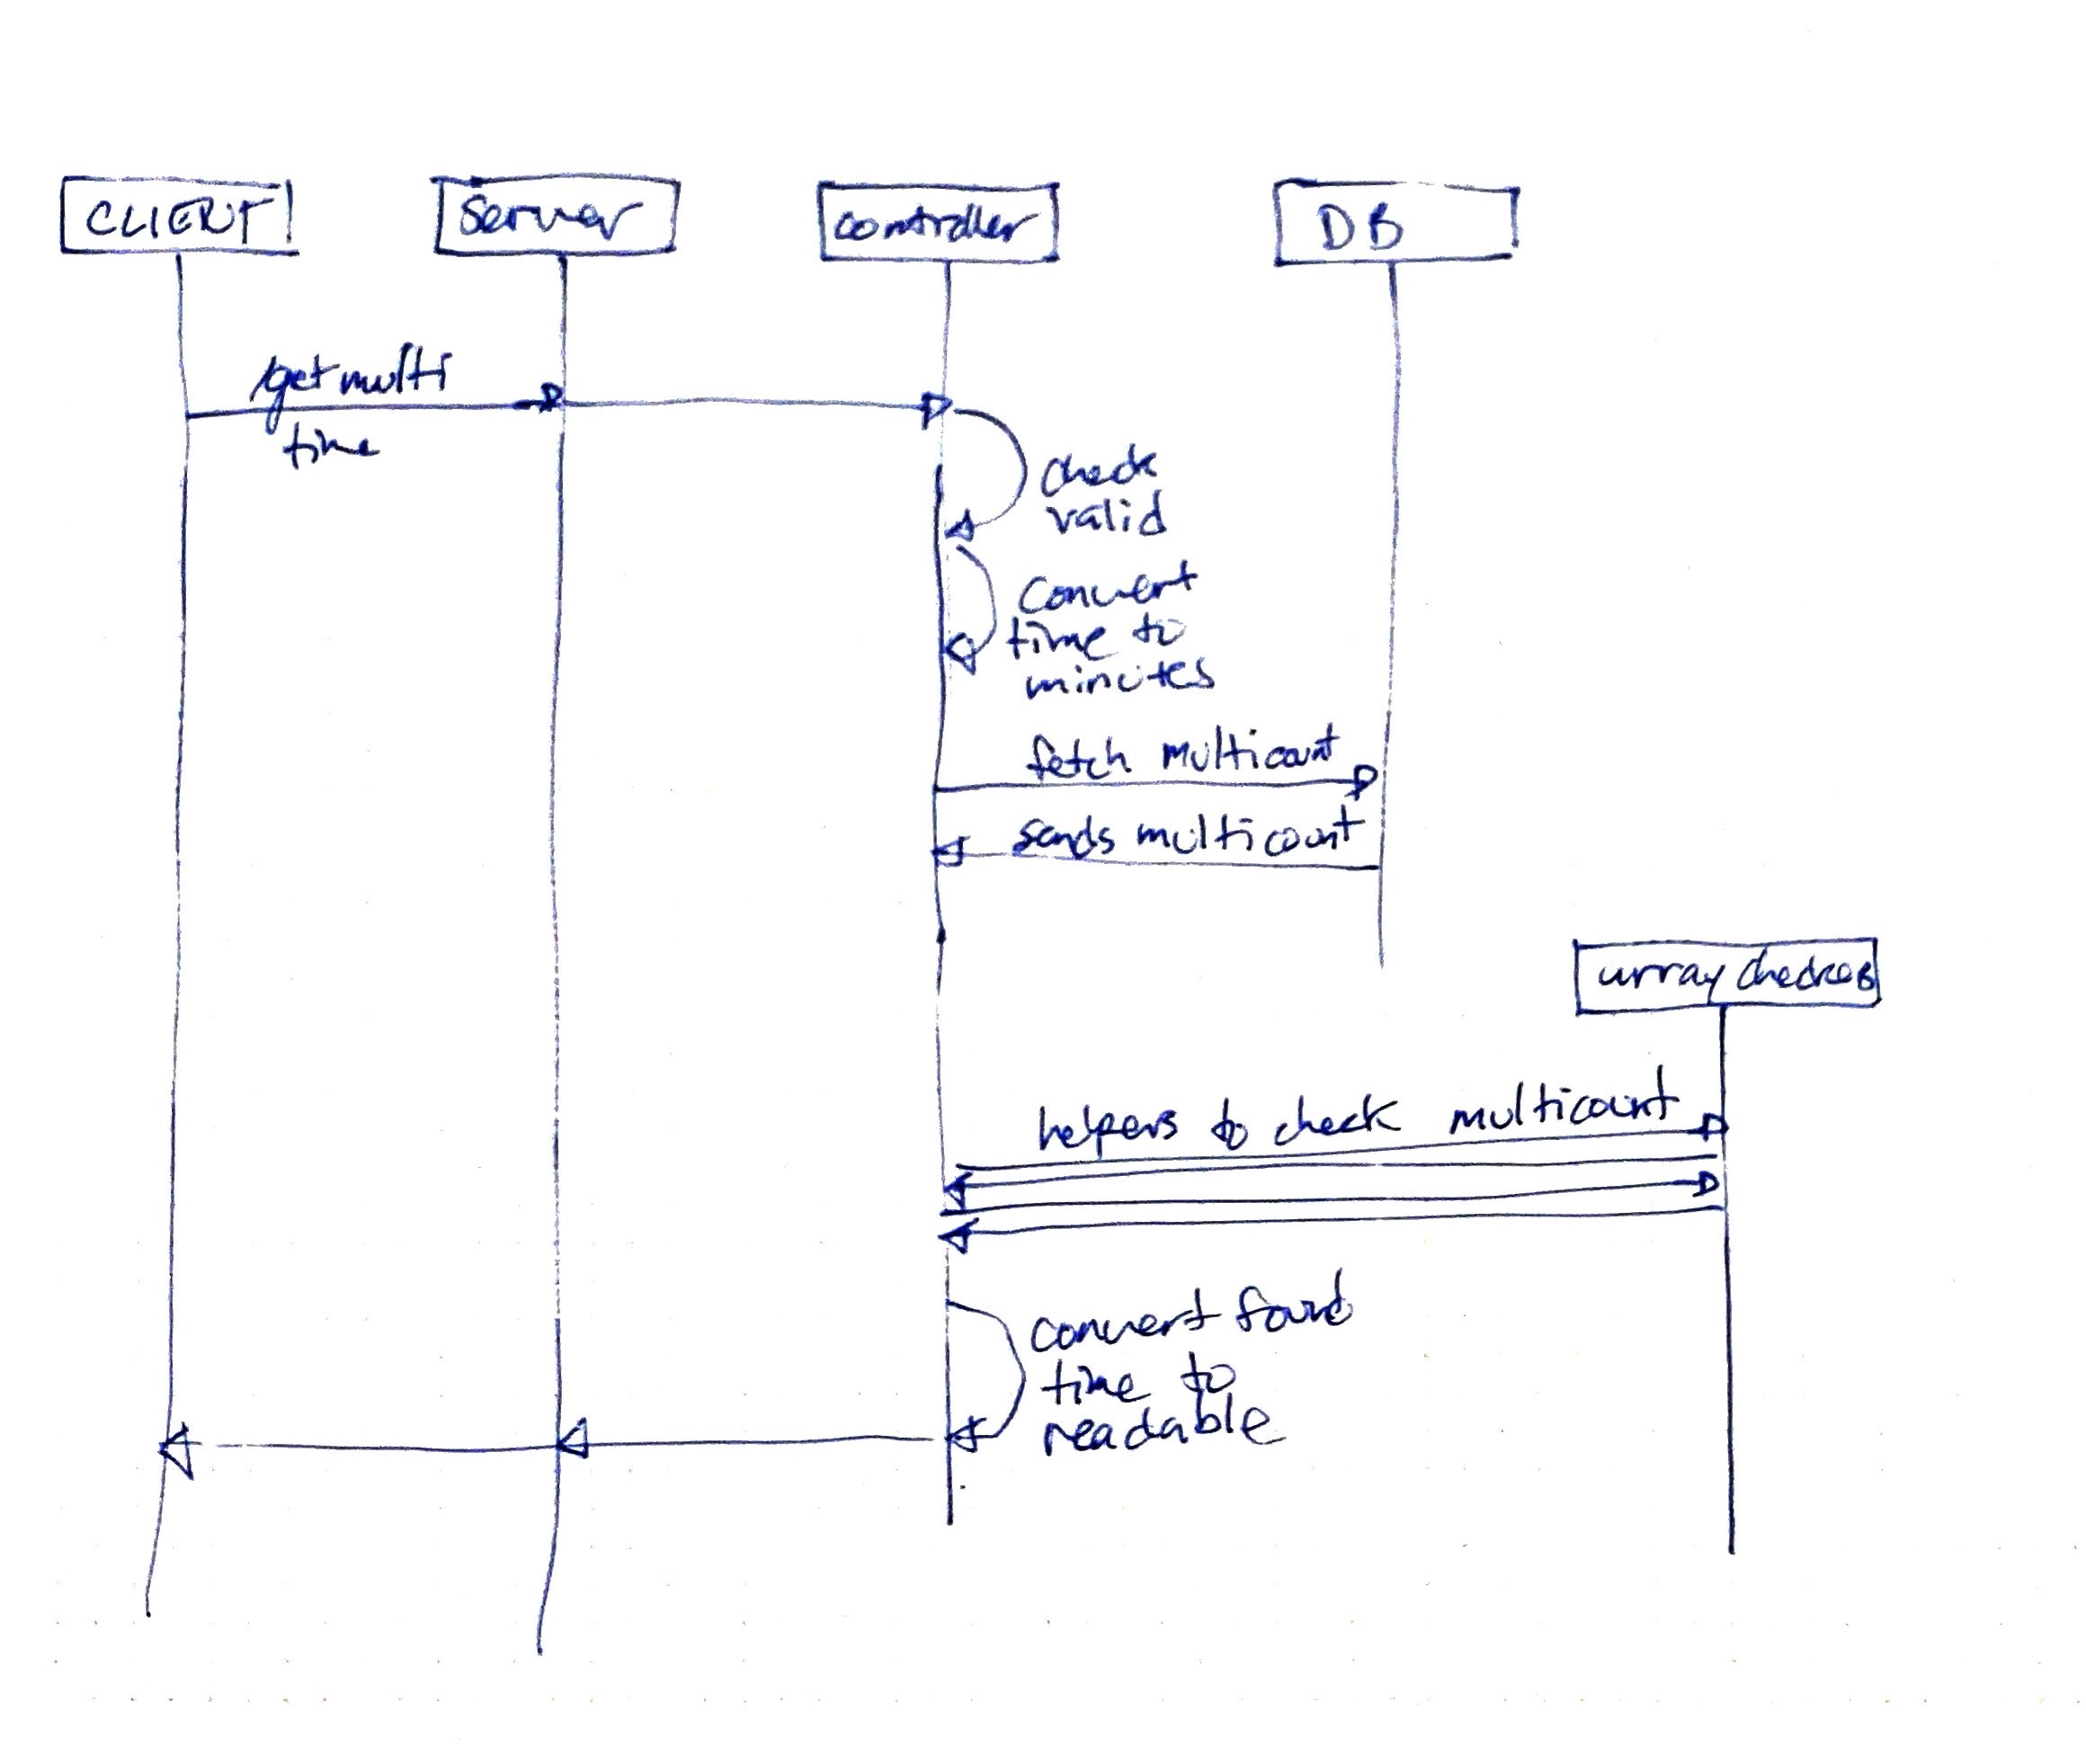 CLIENT
server
controller
DB
/get multi
time
check
valid
convert
time to
minutes
fetch multicount
sends multicount
array checker
helpers to check multicount
convert found
time to
readable